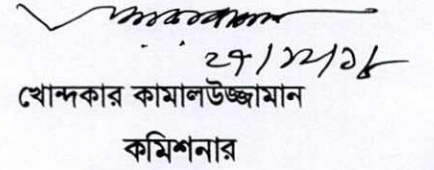 ২৭/১২/১৮
খোন্দকার কামালউজ্জামান
কমিশনার